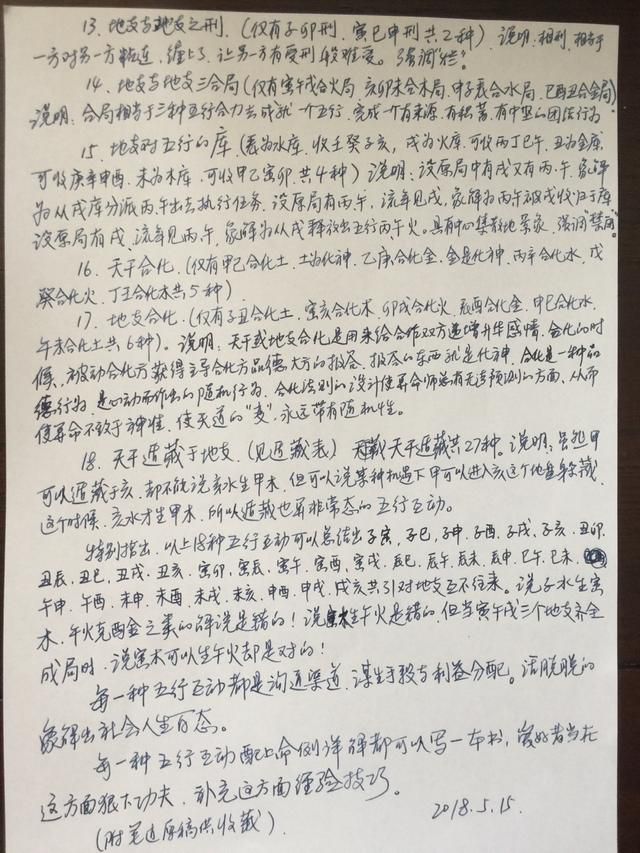 13、地支与地支之刑、(仅有子卯刑、寅巳申刑共2种)说明:相刑,相当于
一方对另一方粘连,缠上了,让另一方有受刑般难受。强调"烂"。
14、地支与地支三合局(仅有寅午戌合火局、亥卯未合木局、申子辰合水局、巳酉丑合金局)
说明:合局相当于三种五行合力去成就一个五行,完成一个有来源、有积蓄、有中坚的团伙行为
15、地支对五行的库(辰为水库,收壬癸子亥,戌为火库,可收丙丁巳午、丑为金库,
可收庚辛申酉、未为木库,可收甲乙寅卯、共4种)说明:设原局中有戌又有丙、午,象解
为从戌库分派丙、午出去执行任务、设原局有丙、午,流年见戌,象解为丙午被戌收归于库
设原局有戌,流年见丙、午,象解为从戌释放出五行丙、午火。具有中心集散地景象,强调"禁闭"。
16、天干合化、(仅有甲己合化土、土为化神,乙庚合化金、金是化神、丙辛合化水、戊
癸合化火、丁壬合化木共5种)
17、地支合化、(仅有子丑合化土、寅亥合化木、卯戌合化火、辰酉合化金、申巳合化水、
午未合化土共6种)。说明:天干或地支合化是用来给合作双方递增升华感情,合化的时
候,被动合化方获得主导合化方品德大方的报答、报答的东西就是化神、合化是一种品
德行为,是心动而作出的随机行为、合化法则的设计使算命师总有无法预测的方面、从而
使算命不致于神准,使天道的"变"永远带有随机性。
18、天干遁藏于地支、(见遁藏表)天干遁藏共27种。说明:虽然甲
可以遁藏于亥、却不能说亥水生甲木、但可以说某种机遇下甲可以进入亥这个地盘躲藏
这个时候、亥水才生甲木、所以遁藏也算非常态的五行互动。
特别指出、以上18种五行互动可以总结出子寅、子巳、子申、子酉、子戌、子亥、丑卯、
丑辰、丑巳、丑戌、丑亥、寅卯、寅辰、寅午、寅酉、寅戌、辰巳、辰午、辰未、辰申、巳午、巳未、
午申、午酉、未申、未酉、未戌、未亥、申酉、申戌、戌亥共31对地支互不往来。说子水生寅
木、午火克酉金之类的解说是错的!说寅木生午火是错的、但当寅午戌三个地支齐全
成局时、说寅木可以生午火却是对的!
每一种五行互动都是沟通渠道、谋生手段与利益分配。活脱脱的
象解出社会人生百态。
每一种五行互动配上命例详解都可以写一本书,爱好者当在
这方面狠下功夫、补充这方面经验技巧。
(附笔迹原稿供收藏)
2018.5.15